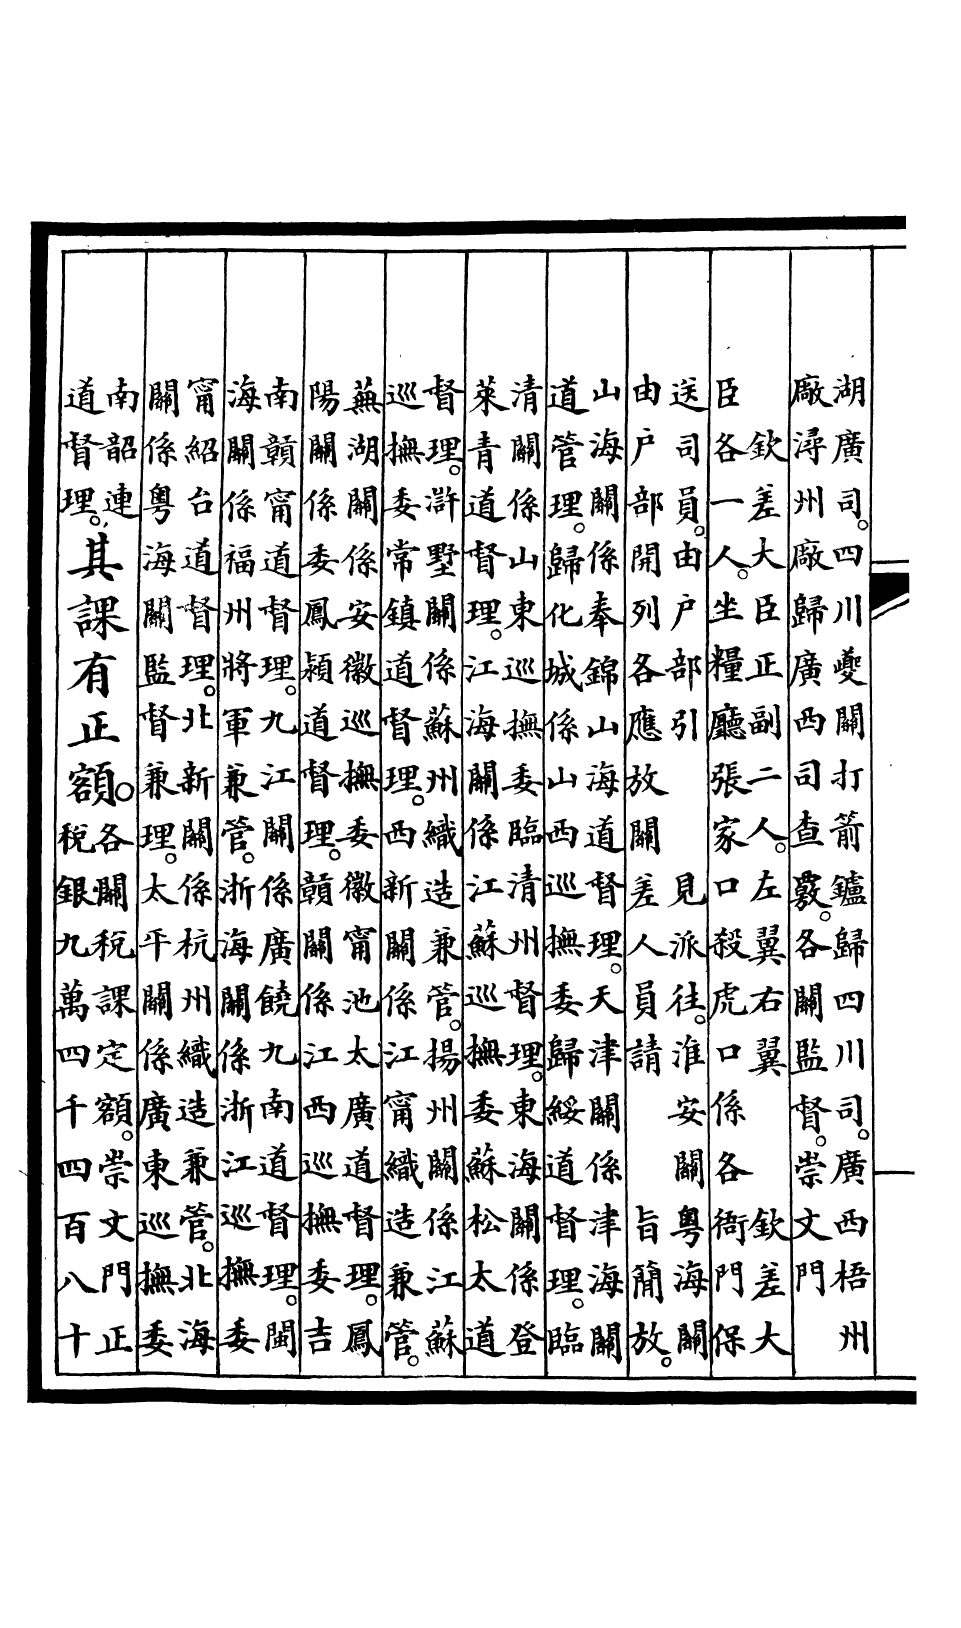 湖廣司。四川夔關打箭鑪歸四川司。廣西梧州
廠潯州廠歸廣西司查覈。各關監督。崇文門
欽差大臣正副二人。左翼右翼 欽差大
臣各一人。坐糧廳張家口殺虎口係各衙門保
送司員。由户部引 見派往。淮安關 粵海關
由户部開列各應放關差人員請 旨簡放。
山海關係奉錦山海道督理。天津關係津海關
道管理。歸化城係山西巡撫委歸綏道督理。臨
清關係山東巡撫委臨清州督理。東海關係登
萊青道督理。江海關係江蘇巡撫委蘇松太道
督理。滸墅關係蘇州織造兼管。揚州關係江蘇
巡撫委常鎮道督理。西新關係江甯織造兼管。
蕪湖關係安徽巡撫委徽甯池太廣道督理。鳳
陽關係委鳳潁道督理。贛關係江西巡撫委吉
南贛甯道督理。九江關係廣饒九南道督理。閩
海關係福州將軍兼管。浙海關係浙江巡撫委
甯紹台道督理。北新關係杭州織造兼管。北海
關係粵海關監督兼理。太平關係廣東巡撫委
南韶連
道督理。
其課有正額。
各關稅課定額。崇文門正
稅銀九萬四千四百八十